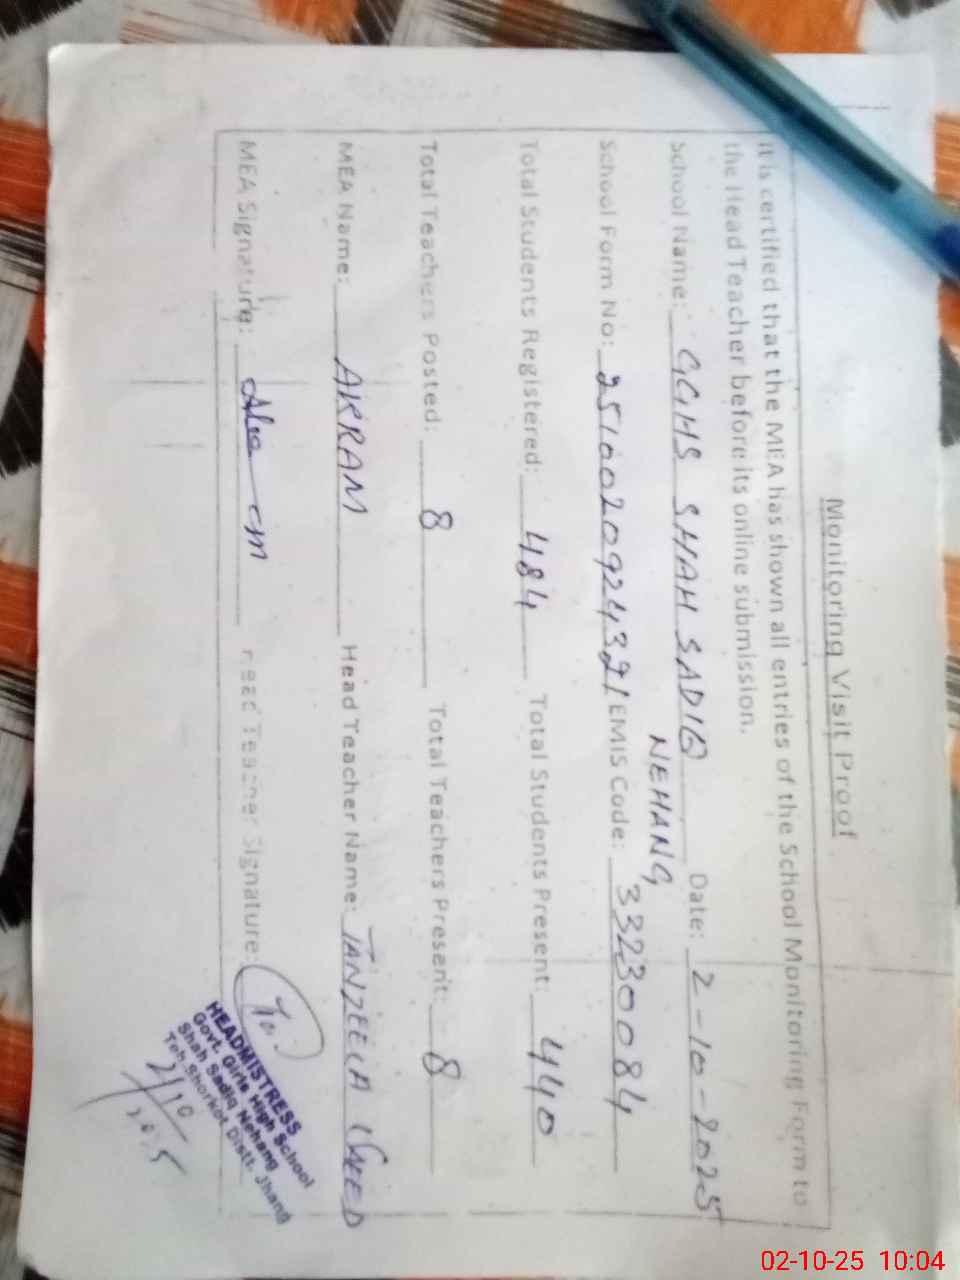 Monitoring Visit Proof
It is certified that the MEA has shown all entries of the School Monitoring Form to
the Head Teacher before its online submission.
School Name: GGHS SHAH SADIQ NEHANG Date: 2-10-2025
School Form No: 2510020924321 EMIS Code: 33230084
Total Students Registered: 484 Total Students Present: 440
Total Teachers Posted: 8 Total Teachers Present: 8
MEA Name: AKRAM Head Teacher Name: TANZEELA SAEED
MEA Signature: Head Teacher Signature:
HEADMISTRESS
Govt. Girls High School
Shah Sadiq Nehang
Teh. Shorkot Distt. Jhang
2/10
2025
02-10-25 10:04